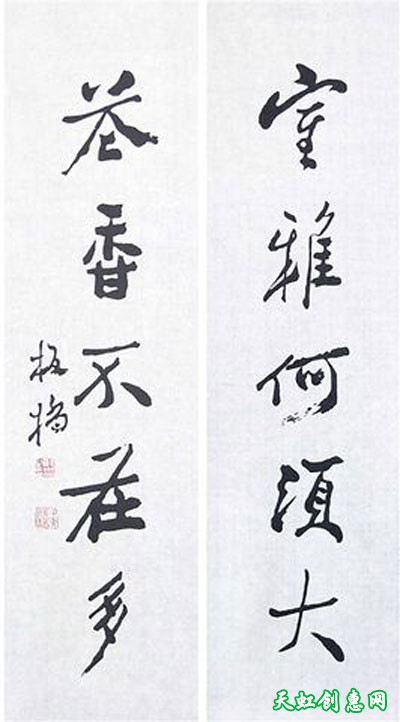 室雅何須大
花香不在多
板橋
天虹创意网